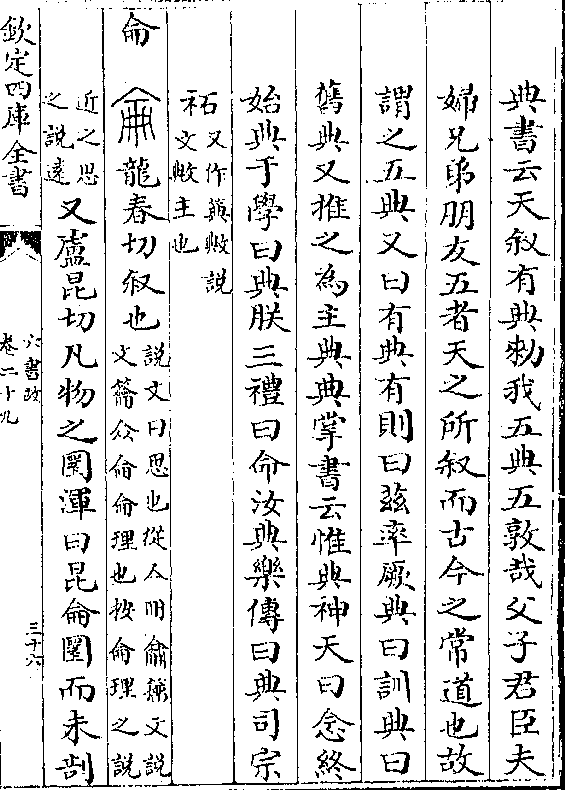 典書云天叙有典勑我五典五敦哉父子君臣夫
婦兄弟朋友五者天之所叙而古今之常道也故
謂之五典又曰有典有則曰兹率厥典曰訓典曰
舊典又推之為主典典掌書云惟典神天曰念終
始典于學曰典朕三禮曰命汝典樂傳曰典司宗
祏又作𥳑𢾭說
文𢾭主也
侖 龍春切叙也說文曰思也從亼冊龠籀文說
文籥从侖侖理也按侖理之說
近之思
之說逺又盧昆切凡物之圂渾曰昆侖圂而未剖
欽定四庫全書
六書故
卷二十九
三十六